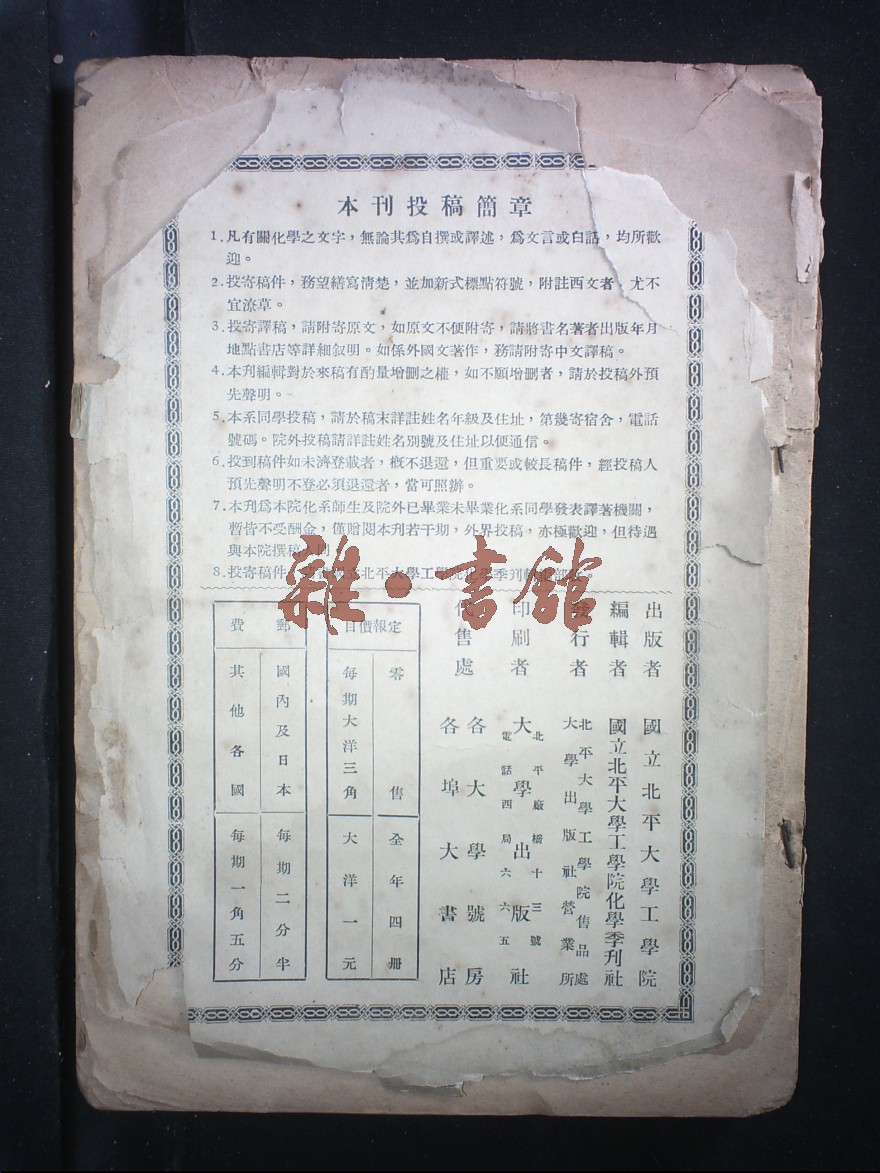 本刊投稿簡章
1. 凡有關化學之文字，無論其爲自撰或譯述，爲文言或白話，均所歡
迎。
2. 投寄稿件，務望繕寫清楚，並加新式標點符號，附註西文者，尤不
宜潦草。
3. 投寄譯稿，請附寄原文，如原文不便附寄，請將書名著者出版年月
地點書店等詳細叙明。如係外國文著作，務請附寄中文譯稿。
4. 本刊編輯對於來稿有酌量增删之權，如不願增删者，請於投稿外預
先聲明。
5. 本系同學投稿，請於稿末詳註姓名年級及住址，第幾寄宿舍，電話
號碼。院外投稿請詳註姓名別號及住址以便通信。
6. 投到稿件如未濟登載者，概不退還，但重要或較長稿件，經投稿人
預先聲明不登必須退還者，當可照辦。
7. 本刊爲本院化系師生及院外已畢業未畢業化系同學發表譯著機關，
暫皆不受酬金，僅贈閱本刊若干期，外界投稿，亦極歡迎，但待遇
與本院撰稿人同
8. 投寄稿件 立北平大學工學院化學季刊
雜·書館
出版者 國立北平大學工學院
編輯者 國立北平大學工學院化學季刊社
發行者 北平大學工學院售品處
大學出版社營業所
印刷者 大學出版社
北平廠橋十三號
電話四局六六五
代售處 各大學號房
各埠大書店
定報價目
零售 全年四册
每期大洋三角 大洋一元
郵費
國內及日本 每期二分半
其他各國 每期一角五分